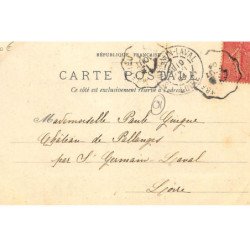 RÉPUBLIQUE FRANÇAISE
CARTE POSTALE
Ce côté est exclusivement réservé à l'adresse
Mademoiselle Paule Guigue
Château de
par St Germain Laval
Loire